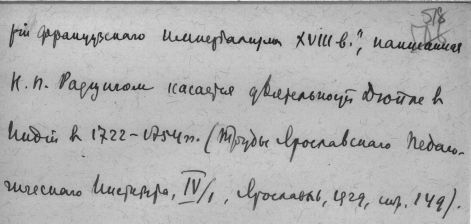 518
рии французского империализма XVIII в.", написанная
Н. П. Радцигом касается деятельности Дюпле в
Индии в 1722–1754 гг. (Труды Ярославского Педаго-
гического Института, IV/1, Ярославль, 1929, стр. 149).